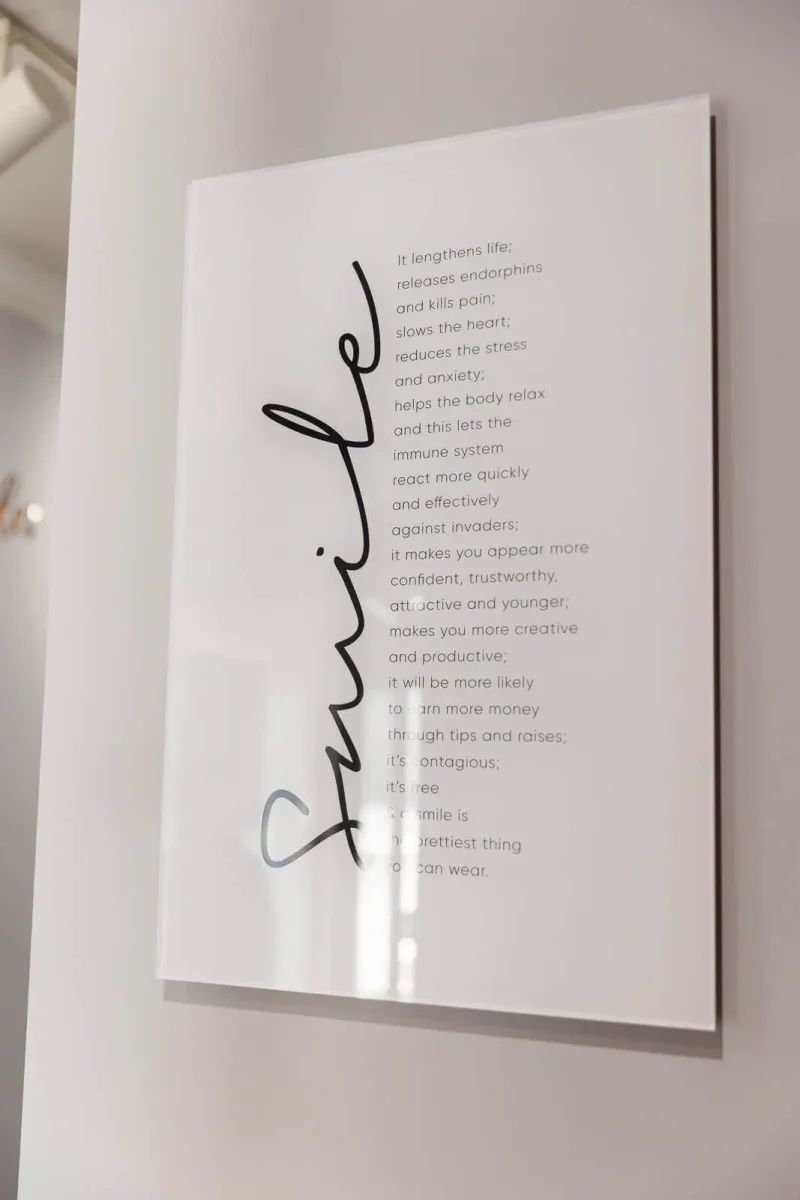 Smile
It lengthens life;
releases endorphins
and kills pain;
slows the heart;
reduces the stress
and anxiety;
helps the body relax
and this lets the
immune system
react more quickly
and effectively
against invaders;
it makes you appear more
confident, trustworthy,
attractive and younger;
makes you more creative
and productive;
it will be more likely
to earn more money
through tips and raises;
it's contagious;
it's free
& a smile is
the prettiest thing
you can wear.